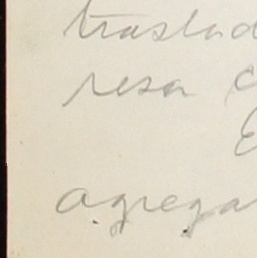 traslad
resa c
E
agrega